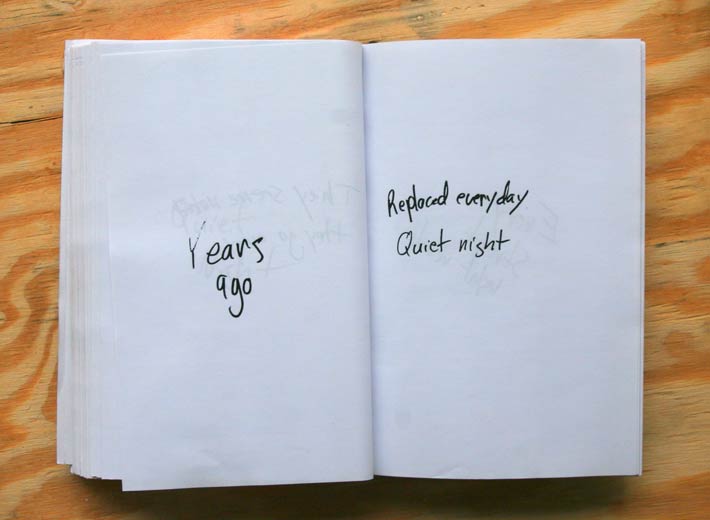 Years
ago
Replaced everyday
Quiet night